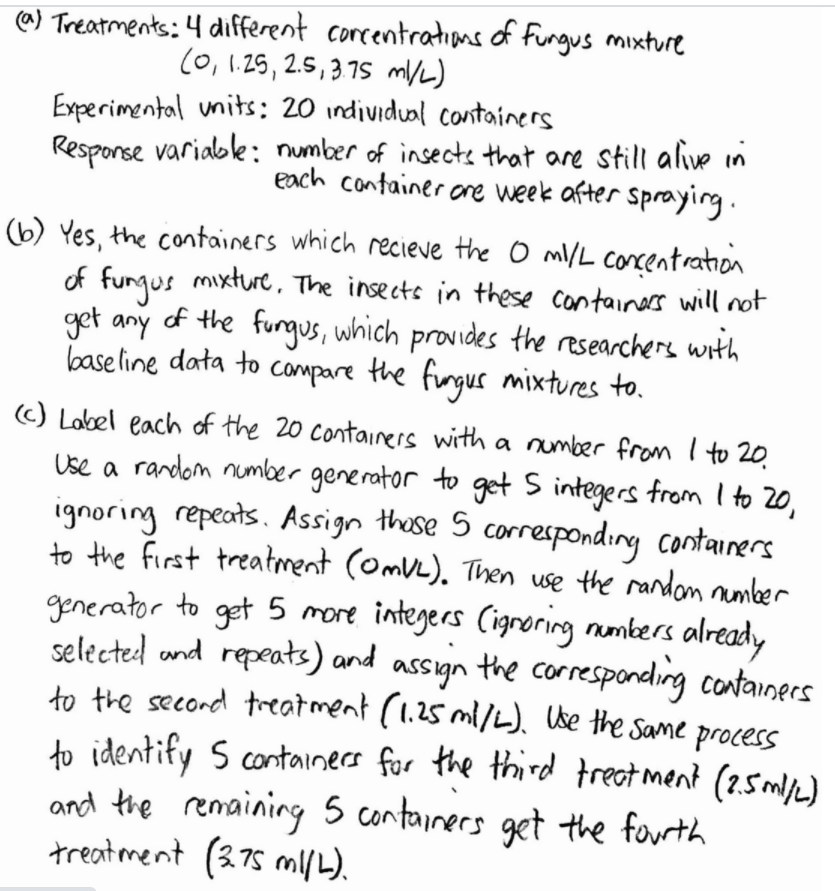 (a) Treatments: 4 different concentrations of fungus mixture
(0, 1.25, 2.5, 3.75 ml/L)
Experimental units: 20 individual containers
Response variable: number of insects that are still alive in
each container one week after spraying.
(b) Yes, the containers which recieve the 0 ml/L concentration
of fungus mixture. The insects in these containers will not
get any of the fungus, which provides the researchers with
baseline data to compare the fungus mixtures to.
(c) Label each of the 20 containers with a number from 1 to 20.
Use a random number generator to get 5 integers from 1 to 20,
ignoring repeats. Assign those 5 corresponding containers
to the first treatment (0ml/L). Then use the random number
generator to get 5 more integers (ignoring numbers already
selected and repeats) and assign the corresponding containers
to the second treatment (1.25 ml/L). Use the same process
to identify 5 containers for the third treatment (2.5ml/L)
and the remaining 5 containers get the fourth
treatment (3.75 ml/L).